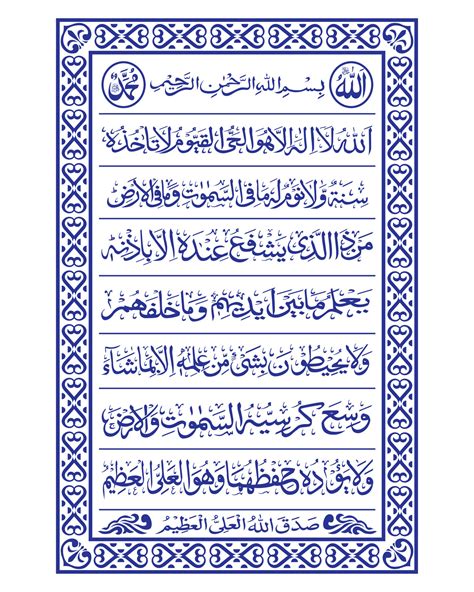 الله بسم الله الرحمن الرحيم محمد
الله لا اله الا هو الحي القيوم لا تاخذه
سنة ولا نوم له ما في السموت وما في الارض
من ذا الذي يشفع عنده الا باذنه
يعلم ما بين ايديهم وما خلفهم
ولا يحيطون بشيء من علمه الا بما شاء
وسع كرسيه السموت والارض
ولا يؤده حفظهما وهو العلي العظيم
صدق الله العلي العظيم